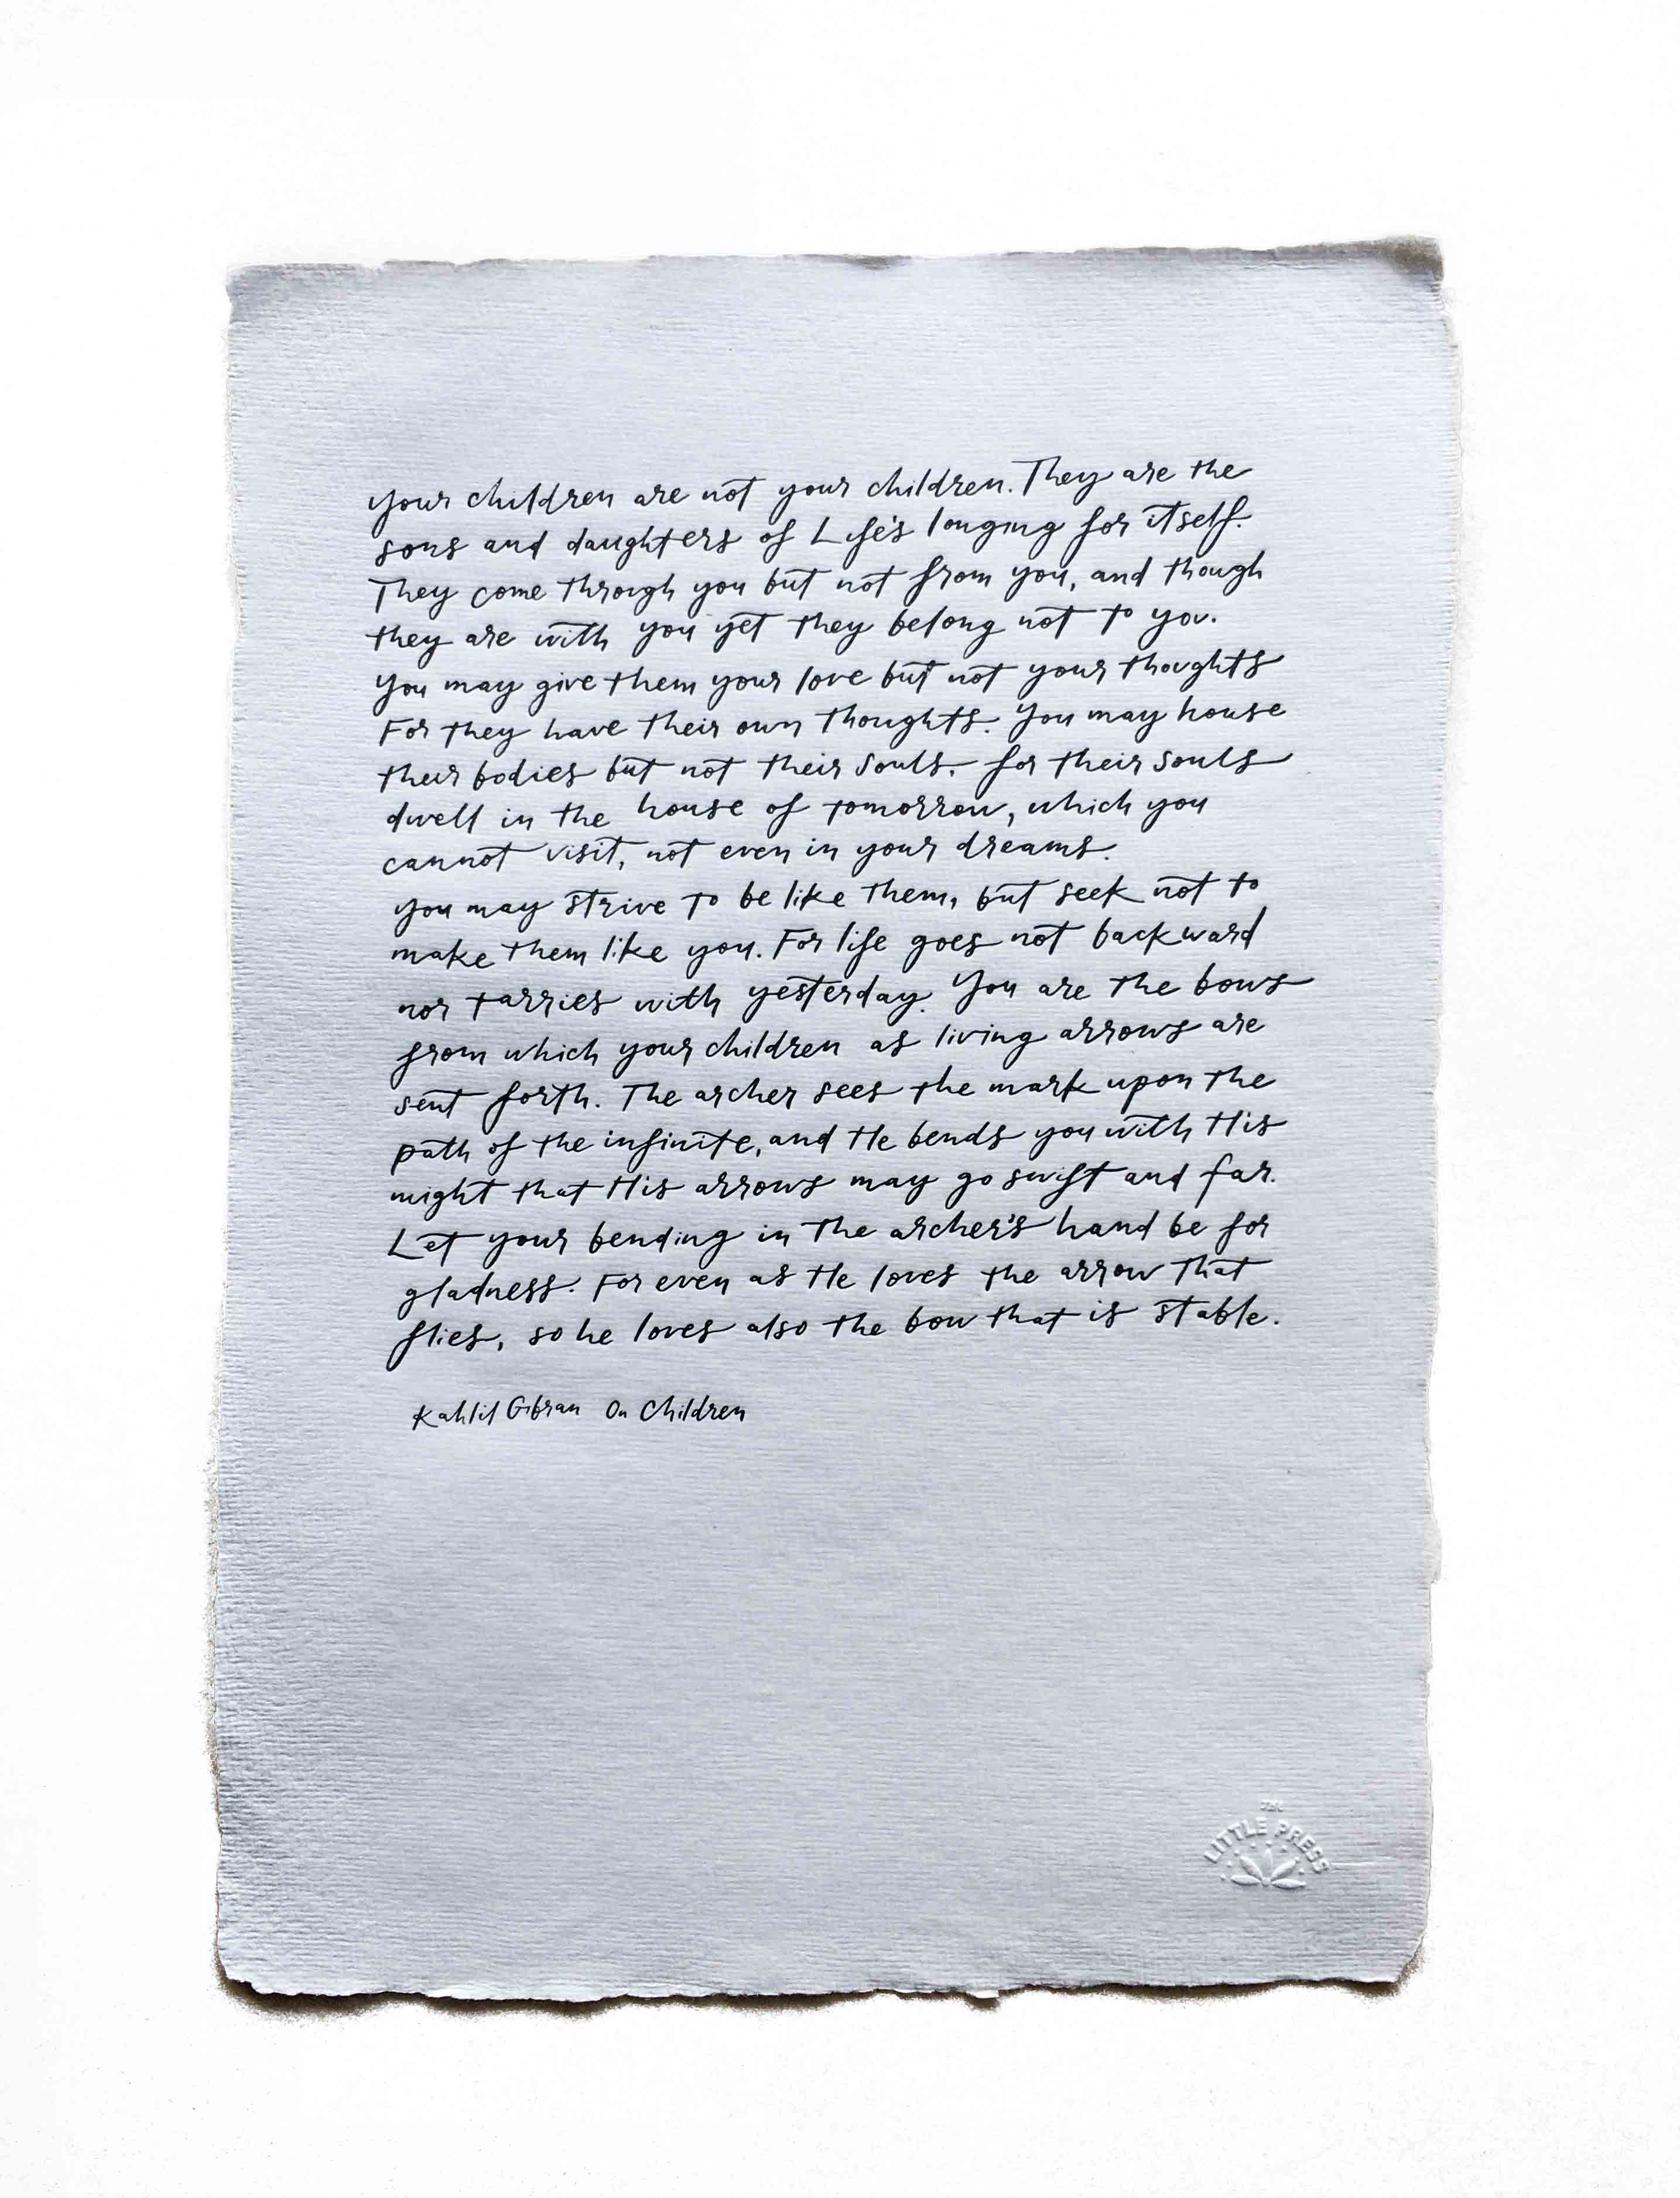 Your children are not your children. They are the
sons and daughters of Life's longing for itself.
They come through you but not from you, and though
they are with you yet they belong not to you.
You may give them your love but not your thoughts
For they have their own thoughts. You may house
their bodies but not their souls, for their souls
dwell in the house of tomorrow, which you
cannot visit, not even in your dreams.
You may strive to be like them, but seek not to
make them like you. For life goes not backward
nor tarries with yesterday. You are the bows
from which your children as living arrows are
sent forth. The archer sees the mark upon the
path of the infinite, and He bends you with His
might that His arrows may go swift and far.
Let your bending in the archer's hand be for
gladness. For even as He loves the arrow that
flies, so he loves also the bow that is stable.
Kahlil Gibran On Children
THE
LITTLE PRESS